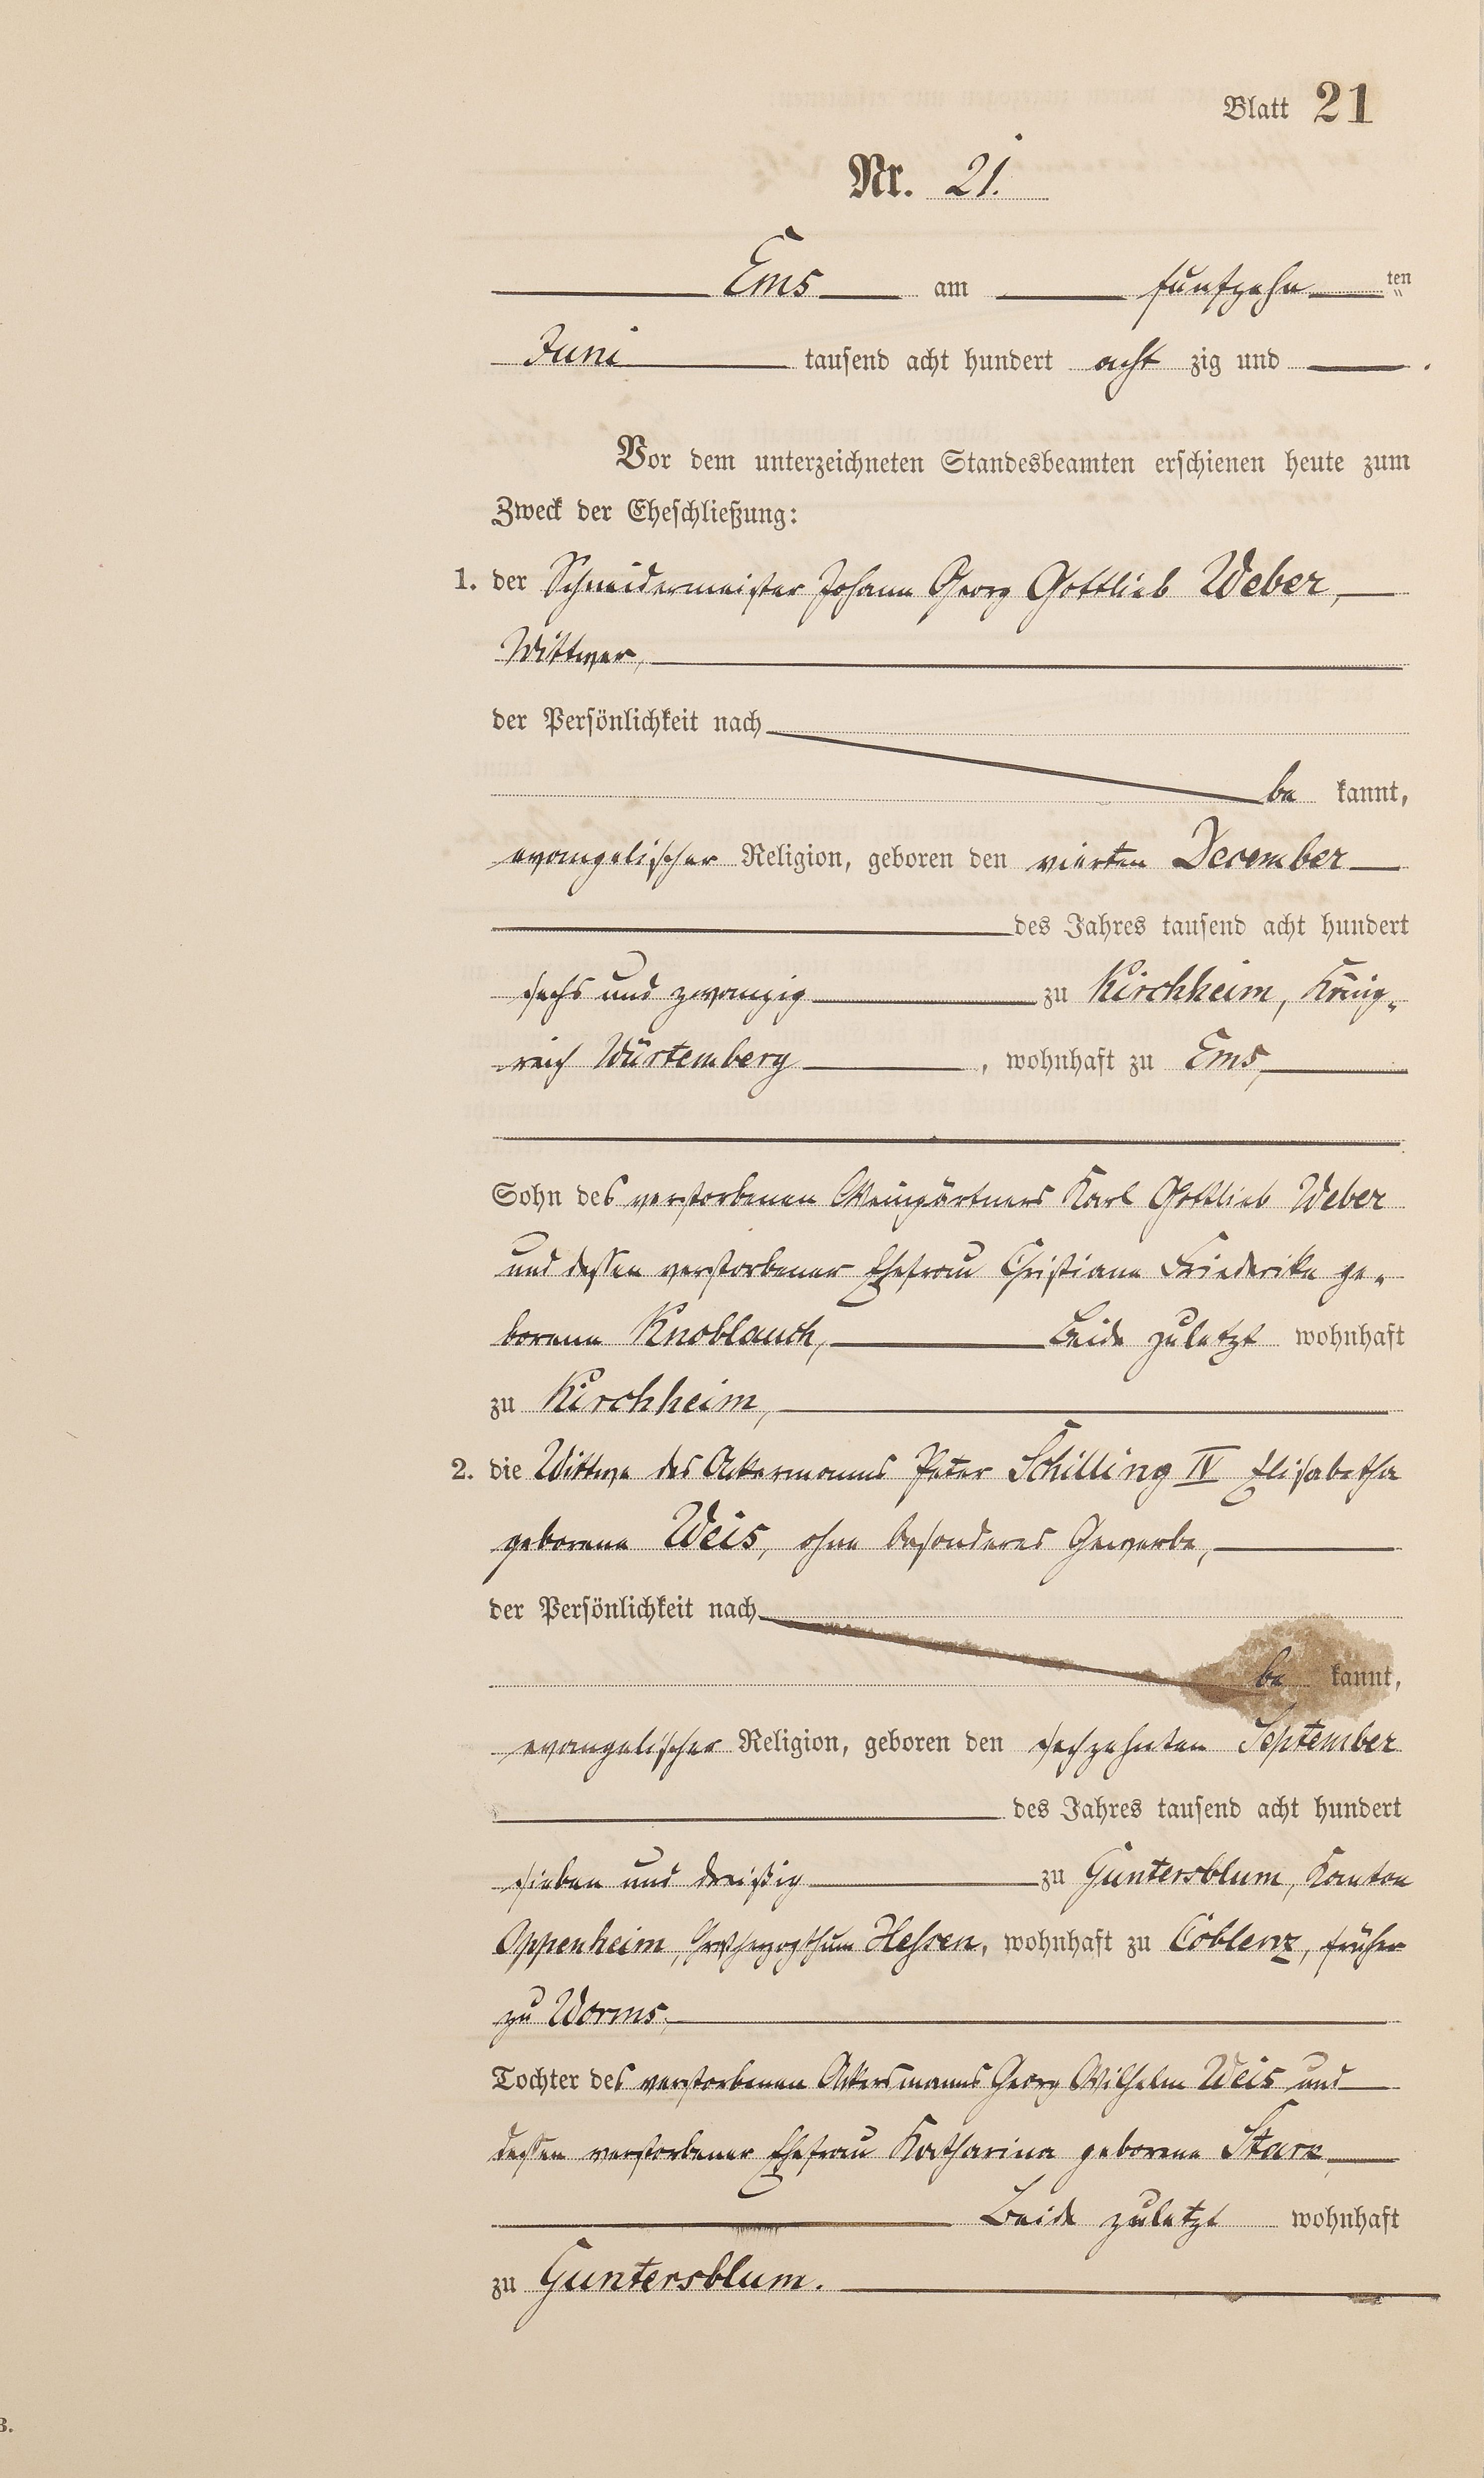 Blatt 21
Nr. 21.
Ems am fünfzehn ten
Juni tausend acht hundert acht zig und
Vor dem unterzeichneten Standesbeamten erschienen heute zum
Zweck der Eheschließung:
1. der Schneidermeister Johann Georg Gottlieb Weber,
Wittwer,
der Persönlichkeit nach
be kannt,
evangelischer Religion, geboren den vierten December
des Jahres tausend acht hundert
sechs und zwanzig zu Kirchheim, König„
reich Würtemberg, wohnhaft zu Ems,
Sohn des verstorbenen Weingärtners Karl Gottlieb Weber
und dessen verstorbener Ehefrau Christiane Friederike ge„
borene Knoblauch, Beide zuletzt wohnhaft
zu Kirchheim,
2. die Wittwe des Ackermanns Peter Schilling IV Elisabetha
geborene Weis, ohne besonderes Gewerbe,
der Persönlichkeit nach
be kannt,
evangelischer Religion, geboren den sechzehnten September
des Jahres tausend acht hundert
sieben und dreißig zu Guntersblum, Kanton
Oppenheim, Großherzogthum Hessen, wohnhaft zu Coblenz, früher
zu Worms,
Tochter des verstorbenen Ackersmanns Georg Wilhelm Weis und
dessen verstorbener Ehefrau Katharina geborene
Beide zuletzt wohnhaft
zu Guntersblum.
3.